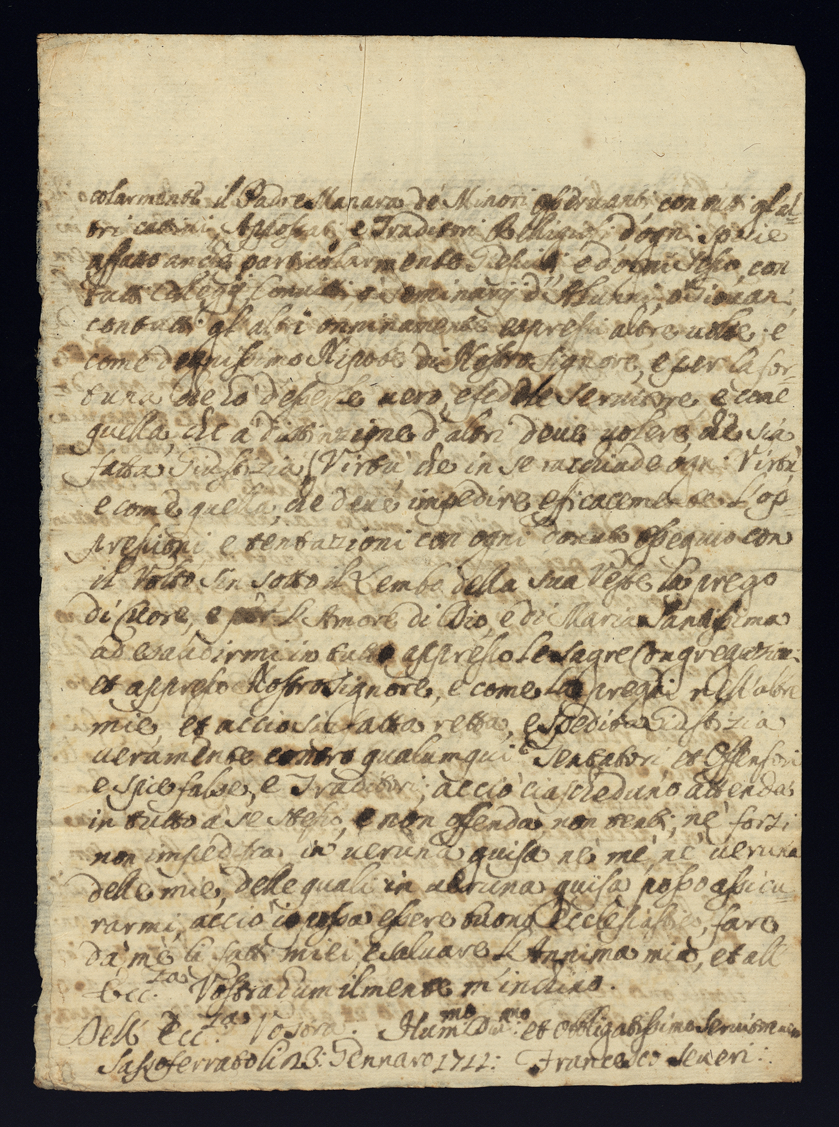 colarmente il Padre Manara de Minori osservanti con tutti gl'al=
tri cattivi Appostati e Traditori Religiosi d'ogni specie
affatto anche particolarmente Giesuiti, e con
tutti Collegij Convitti, ò Seminarij d'Alunni, ò Giovani
con tutti gl'altri onninamente espressi altre volte; è
come degnissimo Nipote di Nostro Signore, e per la for=
tuna che io d'essere vero, e fedele servitore e come
quella, che à distinzione d'altri deve volere che sia
fatta Giustizia (Virtù che in se racchiude ogni Virtù
e come quella, che deve impedire eficacemente l'op=
pressioni e tentazioni con ogni dovuto ossequio con
il Volto sin sotto il Lembo della sua Veste la prego
di Cuore, e per l'Amore di Dio, e di Maria Santissima
ad esaudirmi in tutto appresso le sagre Congregazioni
et appresso Nostro Signore, e come la pregai nell'altre
mie, et acciò sia fatta retta, e spedita Giustizia
veramente contro qualunqui Tentatori et Offensori
e spie false, e Traditori; acciò ciascheduno attenda
in tutto à se stesso, e non offenda, non tenti, nè forzi
non impedisca in veruna guisa nè mè, nè veruna
delle mie, delle quali in veruna guisa posso assicu=
rarmi, acciò io possa essere buono Ecclesiastico, fare
da mè li fatti miei e salvare l'Annima mia, et all'
Ecc.za Vostra Humilmente m'inchino.
Dell' Ecc.za Vostra. Hum.mo Div.mo et Obligatissimo Servitore vero
Sassoferrato li 13: Gennaro 1712: Francesco Severi: